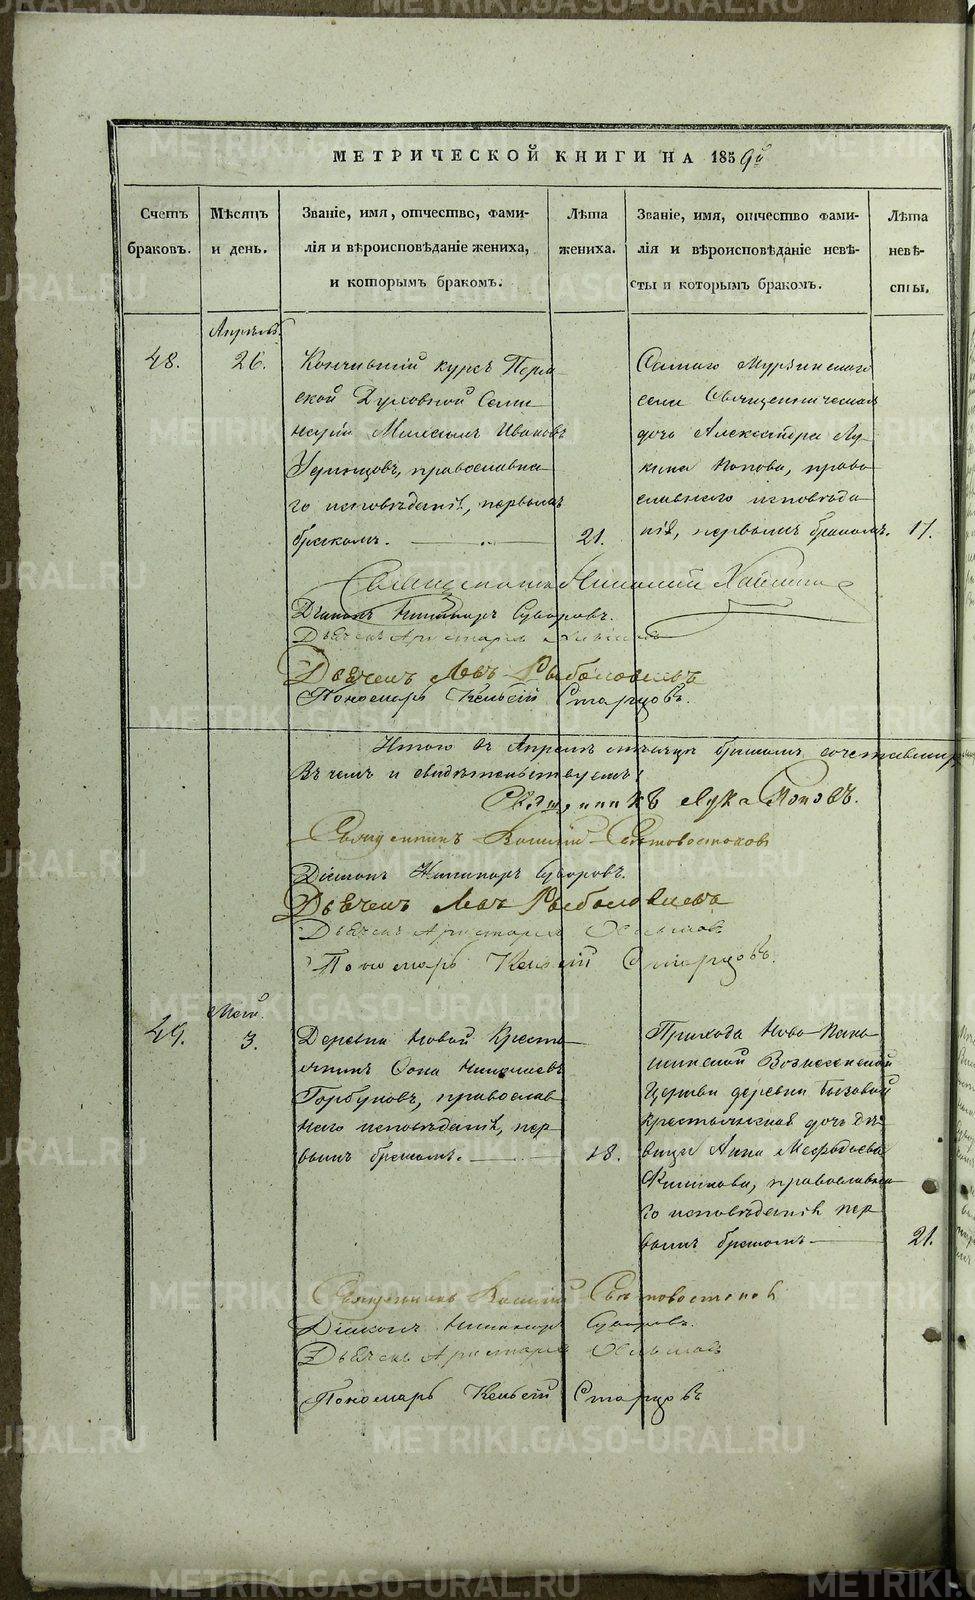 МЕТРИЧЕСКОЙ КНИГИ НА 1859й
Счетъ браковъ.
Мѣсяцъ и день.
Званіе, имя, отчество, фами-
лія и вѣроисповѣданіе жениха,
и которымъ бракомъ.
Лѣта жениха.
Званіе, имя, отчество фами-
лія и вѣроисповѣданіе невѣ-
сты и которымъ бракомъ.
Лѣта невѣ-
сты.
Апрѣль.
48.
26.
Кончившій курсъ Перм
ской Духовной Семи
наріи Михаилъ Ивановъ
православна
го исповѣданія, первымъ
бракомъ.
21.
Самаго Мурзинскаго
села Священническая
дочь Александра Лу
кина Попова, право
славнаго исповѣда
нія, первымъ бракомъ.
17.
Священникъ Николай
Діаконъ Никаноръ Суворовъ.
Дьячекъ Аристархъ
Дьячекъ Левъ Рыболовлевъ
Пономарь Кельсій Старцовъ.
Итого въ Апрѣлѣ мѣсяцѣ бракомъ сочетавших
Въ чемъ и свидѣтельствуемъ:
Священникъ Лука Поповъ.
Священникъ Василій Свѣтовостоковъ
Діаконъ Никаноръ Суворовъ.
Дьячекъ Левъ Рыболовлевъ
Дьячекъ Аристархъ
Пономарь Кельсій Старцовъ.
Май.
49.
3.
Деревни Новой Кресть
янинъ Фома Николаевъ
Горбуновъ, православ
наго исповѣданія, пер
вымъ бракомъ.
18.
Прихода Ново-
Вознесенской
Церкви деревни Бызовой
крестьянская дочь дѣ
вица Анна Меѳодьева
православна
го исповѣданія пер
вымъ бракомъ
21.
Священникъ Василій Свѣтовостоковъ
Діаконъ Никаноръ Суворовъ.
Дьячекъ Аристархъ
Пономарь Кельсій Старцовъ
METRIKI.GASO-URAL.RU